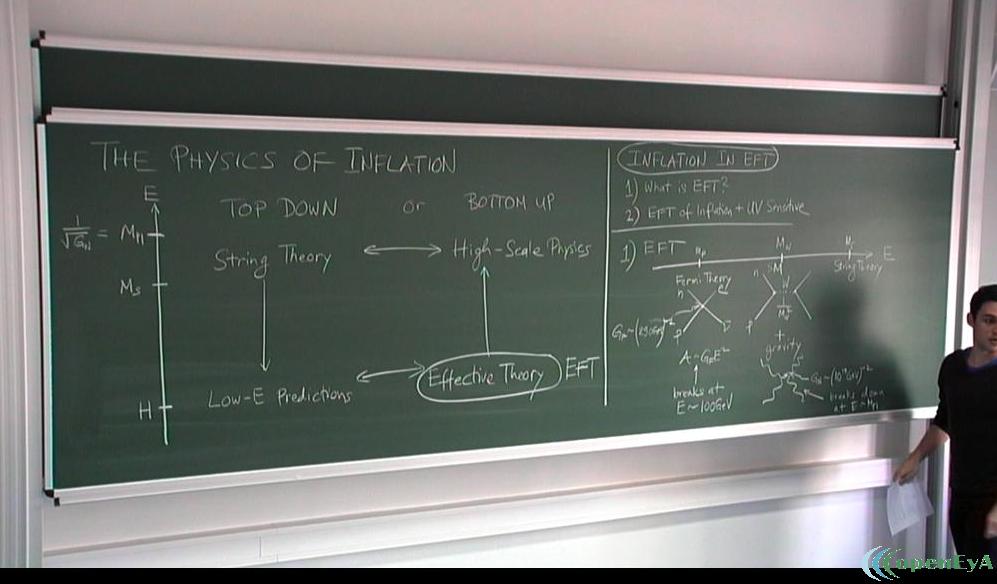 THE PHYSICS OF INFLATION
E
1/√G_N = M_Pl
M_S
H
TOP DOWN or BOTTOM UP
String Theory ⟷ High-Scale Physics
Low-E Predictions ⟷ Effective Theory EFT
INFLATION IN EFT
1) What is EFT?
2) EFT of Inflation + UV Sensitive
1) EFT
M_W
E
Fermi Theory
SM
String Theory
n
p
n
W
p
A ~ G_F E²
breaks at
E ~ 100GeV
+
gravity
G_N ~ (10¹⁹GeV)⁻²
breaks down
at E ~ M_Pl
openEyA